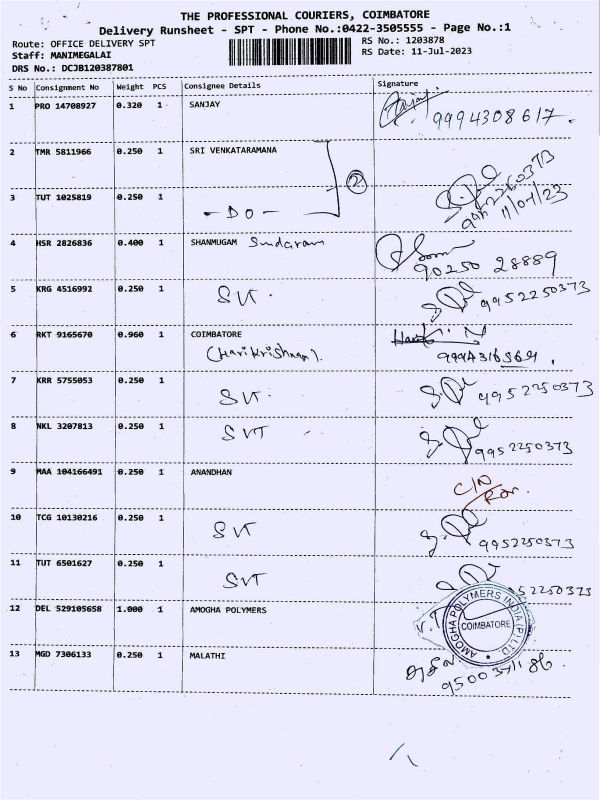 THE PROFESSIONAL COURIERS, COIMBATORE
Delivery Runsheet - SPT - Phone No.:0422-3505555 - Page No.:1
Route: OFFICE DELIVERY SPT
Staff: MANIMEGALAI
DRS No.: DCJB120387801
RS No.: 1203878
RS Date: 11-Jul-2023
S No Consignment No Weight PCS Consignee Details Signature
1 PRO 14708927 0.320 1 SANJAY
9994308617.
2 TMR 5811966 0.250 1 SRI VENKATARAMANA
2
3 TUT 1025819 0.250 1
- DO -
9952250373
11/07/23
4 HSR 2826836 0.400 1 SHANMUGAM Sundaram
90250 28889
5 KRG 4516992 0.250 1
SVT
9952250373
6 RKT 9165670 0.960 1 COIMBATORE
(Harikrishnan).
7 KRR 5755053 0.250 1
SVT
9952250373
8 NKL 3207813 0.250 1
SVT
9952250373
9 MAA 104166491 0.250 1 ANANDHAN
10 TCG 10130216 0.250 1
SVT
9952250373
11 TUT 6501627 0.250 1
SVT
52250373
12 DEL 529105658 1.000 1 AMOGHA POLYMERS
V.T
AMOGHA POLYMERS INDIA (P) LTD
COIMBATORE
13 MGD 7306133 0.250 1 MALATHI